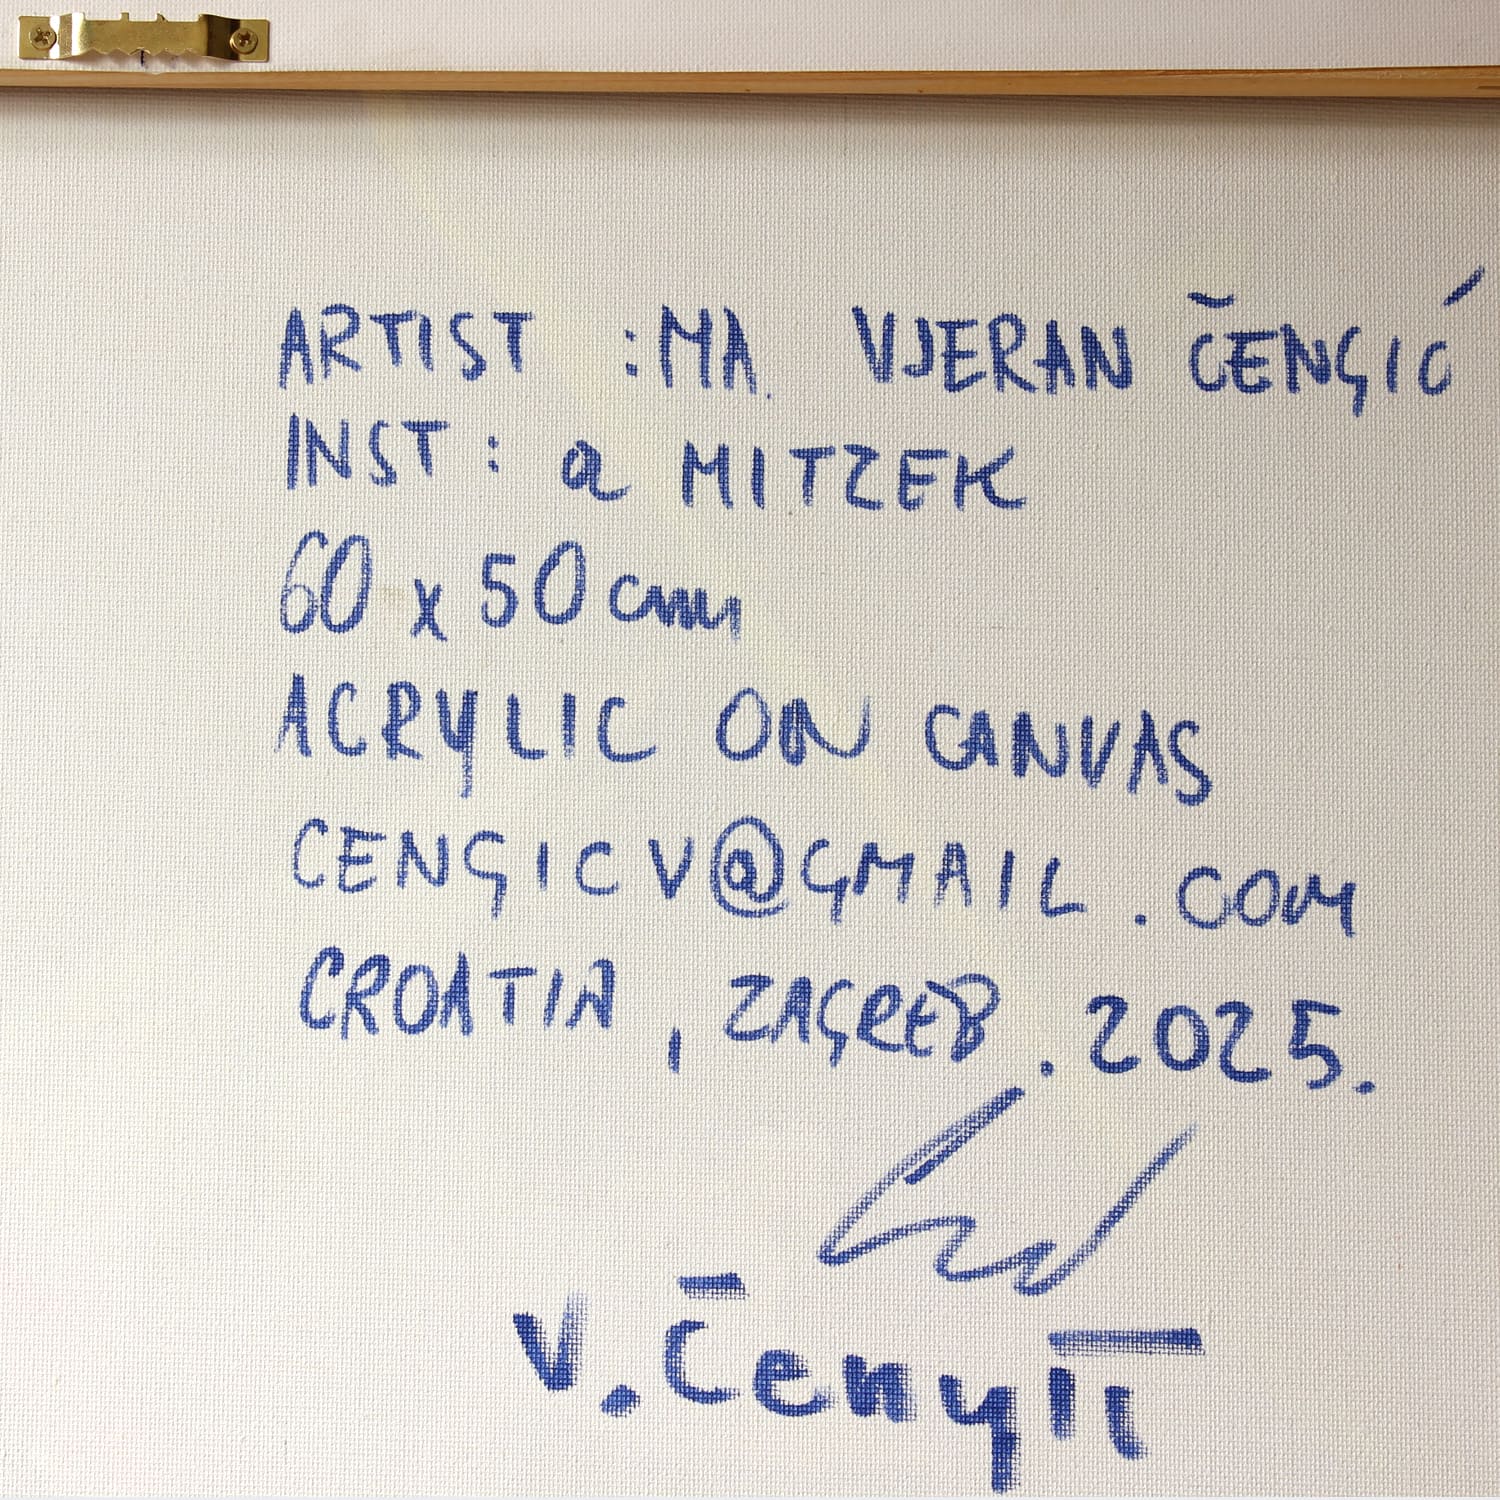 ARTIST :MA. VJERAN ČENGIĆ
INST: a MITZEK
60 x 50 cm
ACRYLIC ON CANVAS
CENGICV@GMAIL.COM
CROATIA, ZAGREB. 2025.
V. Čengić